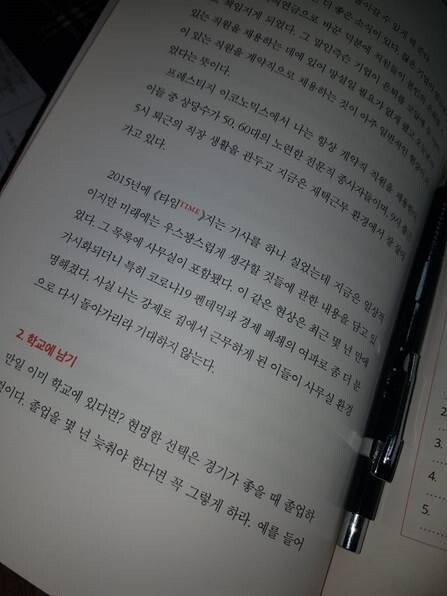 더 좋은 소식이 있다. 많은 기업이
바꾼 덕분에 직원들이
책임지게 되었다. 그 말인즉슨 기업이 은퇴를
있는 직원을 채용하는 데에 있어 망설일 필요가 없게 됐고
이 있는 직원을 계약직으로 채용하는 것이 아주 일반적인
있다는 뜻이다.
프레스티지 이코노믹스에서 나는 항상 계약직 직원을 채용한다.
이들 중 상당수가 50, 60대의 노련한 전문직 종사자들이며, 9시 출근
5시 퇴근의 직장 생활을 관두고 지금은 재택근무 환경에서 잘
가고 있다.
2015년에 《타임TIME》지는 기사를 하나 실었는데 지금은 일상적
이지만 미래에는 우스꽝스럽게 생각할 것들에 관한 내용을 담고 있
었다. 그 목록에 사무실이 포함됐다. 이 같은 현상은 최근 몇 년 만에
가시화되더니 특히 코로나19 펜데믹과 경제 폐쇄의 여파로 좀 더 분
명해졌다. 사실 나는 강제로 집에서 근무하게 된 이들이 사무실 환경
으로 다시 돌아가리라 기대하지 않는다.
2. 학교에 남기
만일 이미 학교에 있다면? 현명한 선택은 경기가 좋을 때 졸업하
것이다. 졸업을 몇 년 늦춰야 한다면 꼭 그렇게 하라. 예를 들어
2.
3.
4.
5.